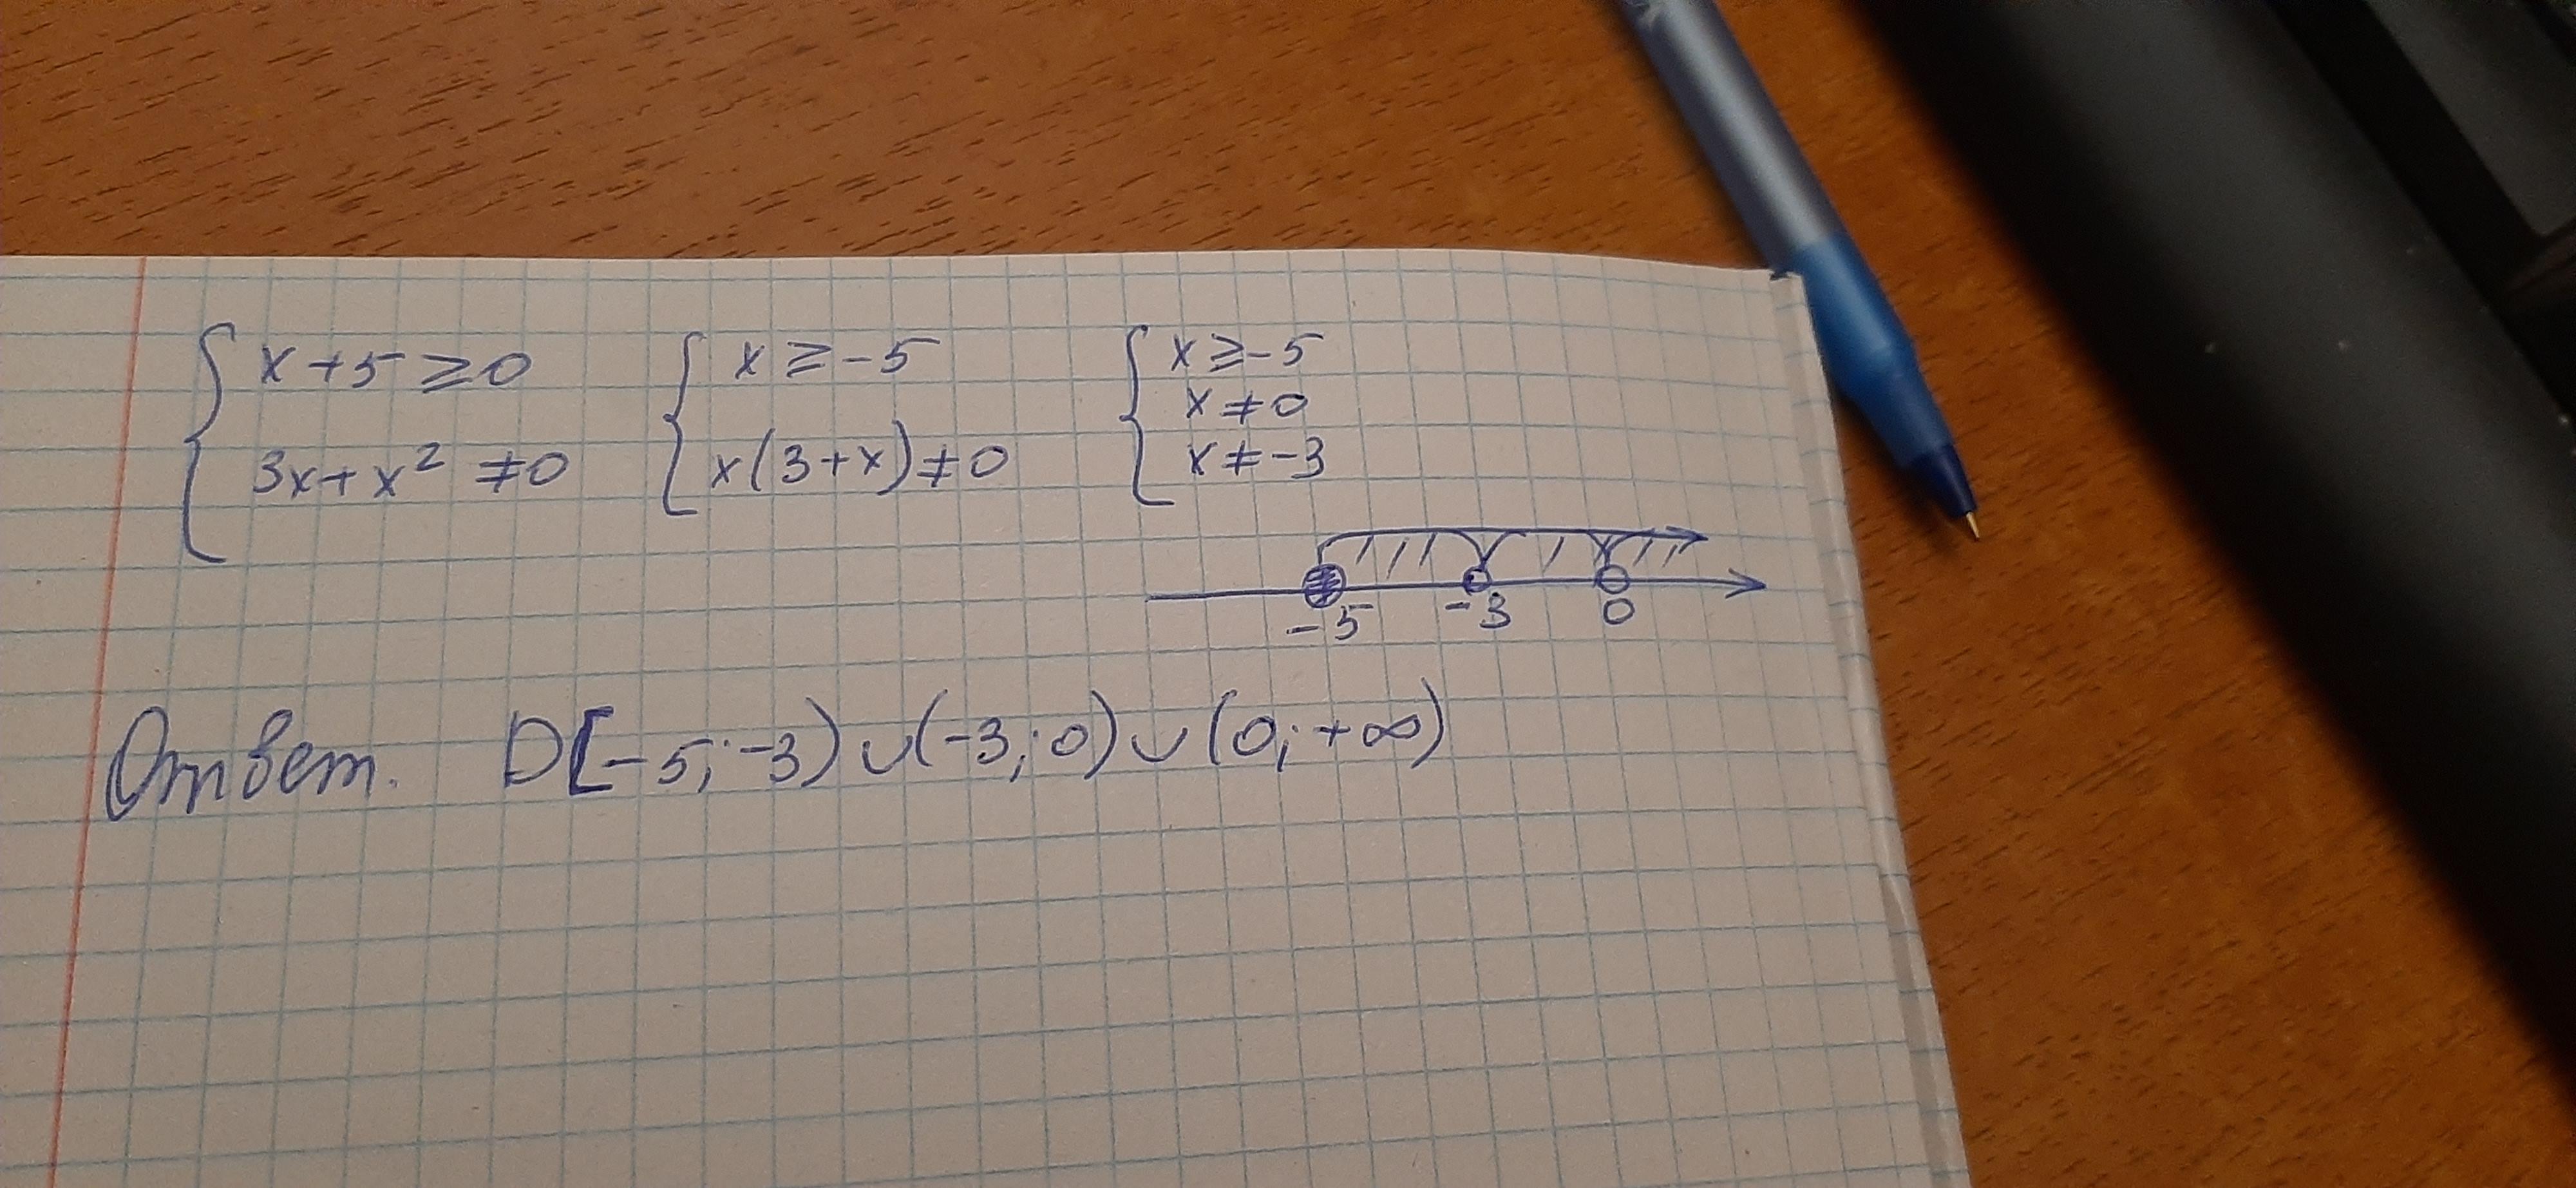 x+5≥0
3x+x² ≠0
x≥-5
x(3+x)≠0
x≥-5
x≠0
x≠-3
-5 -3 0
Ответ. D[-5;-3)∪(-3;0)∪(0;+∞)